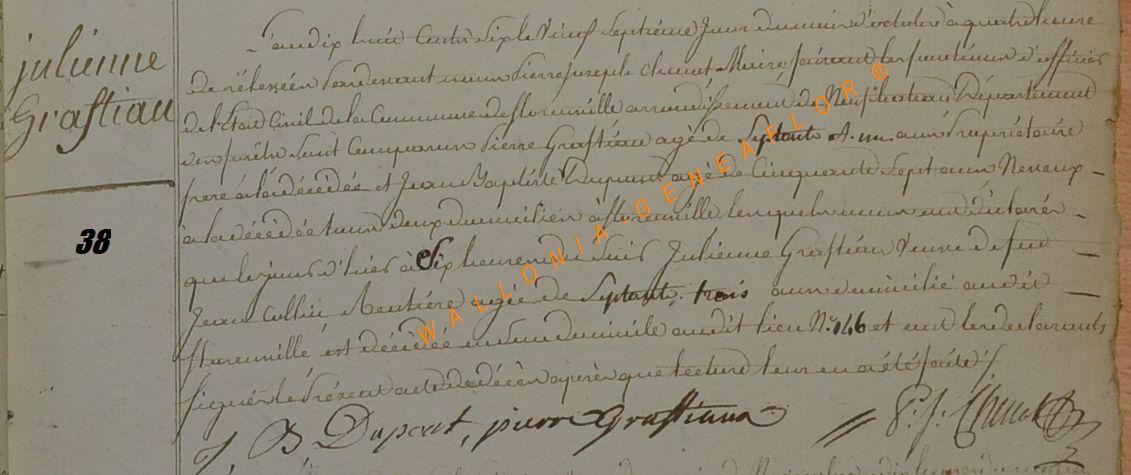 julienne
Grastiau
38
L'an dix huit cent six le vingt septième Jour du mois d'octobre à quatre heure
de rélevéee pardevant nous Pierre Joseph Maire faisant les fonctions d'officier
de l'Etat Civil de la Commune de florenville arrondissement de Neufchateau Département
des forêts sont Comparus Pierre Grastiau agé de Septante et un ans Propriétaire
frere à la décédée et Jean Baptiste agé de Cinquante Sept ans Neveux
à la décédée tous deux domiciliés à florenville lesquels nous ont déclarés
que le jour d'hier à Six heures du Soir Julienne Grastiau Veuve de feu
Jean Rentière agée de Septante trois ans domicilié audit
florenville est décédée en son domicile audit lieu N° 146 et ont les declarants
Signés le Présent acte de décès après que lecture leur en a été faite
J B Dupont, pierre Grastiaux P. J.
WALLONIA GENEAFLOR ®